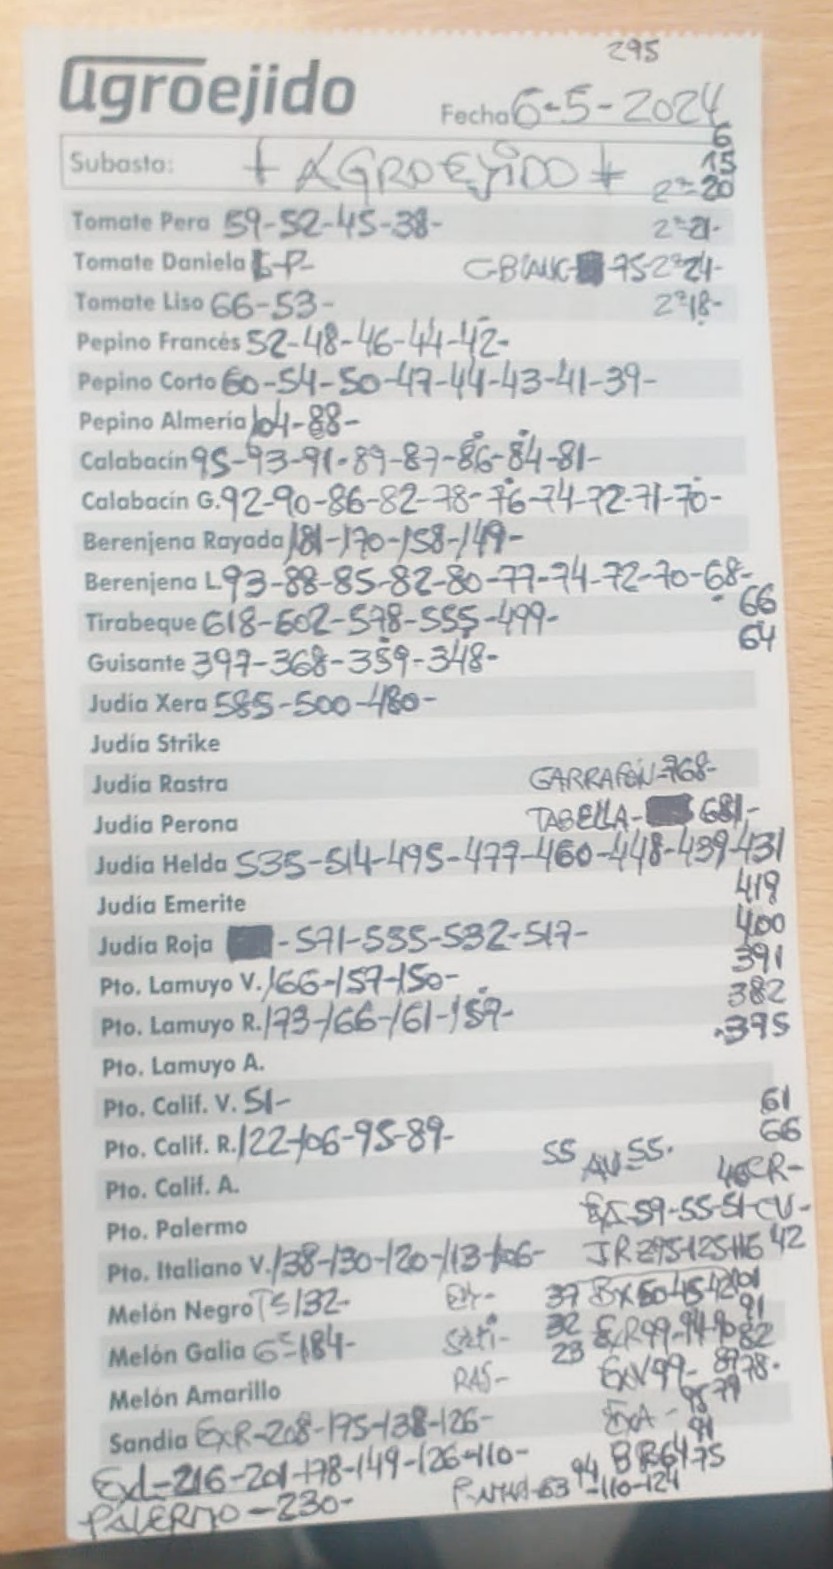 295
agroejido
Fecha 6-5-2024
6
15
Subasta: + AGROEJIDO +
2ª=20
Tomate Pera 59-52-45-38- 2ª=21-
Tomate Daniela -P- C-BLANC- 75 2ª21-
Tomate Liso 66-53- 2ª18-
Pepino Francés 52-48-46-44-42-
Pepino Corto 60-54-50-47-44-43-41-39-
Pepino Almería 104-88-
Calabacín 95-93-91-89-87-86-84-81-
Calabacín G. 92-90-86-82-78-76-74-72-71-70-
Berenjena Rayada 181-170-158-149-
Berenjena L. 93-88-85-82-80-77-74-72-70-68-
66
Tirabeque 618-602-578-555-499-
64
Guisante 397-368-359-348-
Judía Xera 585-500-480-
Judía Strike
Judía Rastra GARRAFÓN-768-
Judía Perona TABELLA- 681-
Judía Helda 535-514-495-477-460-448-439-431
419
Judía Emerite
400
Judía Roja -571-535-532-517-
391
Pto. Lamuyo V. 166-157-150-
382
Pto. Lamuyo R. 173-166-161-159-
.375
Pto. Lamuyo A.
Pto. Calif. V. 51- 61
66
Pto. Calif. R. 122-106-95-89-
55 AV=55.
Pto. Calif. A. 46CR-
Pto. Palermo 59-55-51-CV-
42
Pto. Italiano V. 138-130-120-113-106- JR 295-125-116
Melón Negro TS132- 37 BX50-45-42 101
91
Melón Galia 6S=184- 32 ExR99-94-90 82
23
Melón Amarillo RAS- ExV99- 87 78.
95 79
Sandía ExR-208-175-138-126- ExA-
91
ExL-216-201-178-149-126-110- BR64 75
94
PALERMO-230- -63 -110-124